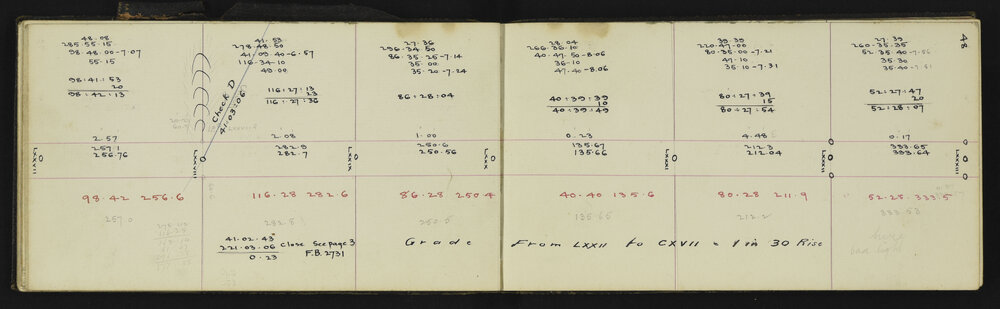 48
48.08
285.55.15
98.48.00-7.07
55.15
98:41:53
20
98:42:13
2.57
257.1
256.76
LXXVII
98.42 256.6
257.0
41.53
278.48.50
41.09.40-6.57
116.34.10
49.00
Check D
41.03.06
116:27:13
23
116:27:36
2.08
282.9
282.7
LXXVIII
116.28 282.6
282.8
41.02.43"
221.03.06
0.23
Close See page 3
F.B. 2731
27.36
296.34.50
86.35.25-7.14
35.00
35.20-7.24
86:28:04
1.00
250.6
250.56
LXXIX
86.28 250.4
250.5
28.04
266.36.10
40.47.50-8.06
36.10
47.40-8.06
40:39:39
10
40:39:49
0.23
135.67
135.66
LXXX
40.40 135.6
135.65
39.39
220.47.00
80.35.00-7.21
47.10
35.10-7.31
80:27:39
15
80:27:54
4.48
212.3
212.04
LXXXI
80.28 211.9
212.2
27.39
260.35.35
52.35.40-7.56
35.30
35.40-7.51
52:27:47
20
52:28:07
0.17
333.65
333.64
LXXXII
52.25.333.5
333.53
LXXXIII
Grade From LXXII to CXVII = 1 in 30 Rise